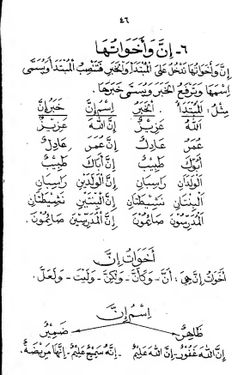 ٤٦
٦- إِنَّ وَأَخَوَاتُهَا
إِنَّ وَأَخَوَاتُهَا تَدْخُلُ عَلَى الْمُبْتَدَأِ وَالْخَبَرِ فَتَنْصِبُ الْمُبْتَدَأَ وَيُسَمَّى
اِسْمَهَا وَتَرْفَعُ الْخَبَرَ وَيُسَمَّى خَبَرَهَا.
مِثْلُ: الْمُبْتَدَأُ الْخَبَرُ اِسْمُ إِنَّ خَبَرُ إِنَّ
اللّٰهُ عَزِيْزٌ إِنَّ اللّٰهَ عَزِيْزٌ
عُمَرُ عَادِلٌ إِنَّ عُمَرَ عَادِلٌ
أَبُوْكَ طَبِيْبٌ إِنَّ أَبَاكَ طَبِيْبٌ
الْوَالِدَانِ رَاسِبَانِ إِنَّ الْوَالِدَيْنِ رَاسِبَانِ
الْبِنْتَانِ نَشِيْطَتَانِ إِنَّ الْبِنْتَيْنِ نَشِيْطَتَانِ
الْمُدَرِّسُوْنَ صَائِمُوْنَ إِنَّ الْمُدَرِّسِيْنَ صَائِمُوْنَ.
أَخَوَاتُ إِنَّ
أَخَوَاتُ إِنَّ هِيَ: أَنَّ - وَكَأَنَّ - وَلٰكِنَّ - وَلَيْتَ - وَلَعَلَّ.
اِسْمُ إِنَّ
ظَاهِرٌ ضَمِيْرٌ
إِنَّ اللّٰهَ غَفُوْرٌ - إِنَّ اللّٰهَ عَلِيْمٌ إِنَّهُ سَمِيْعٌ عَلِيْمٌ - إِنَّهَا مَرِيْضَةٌ.